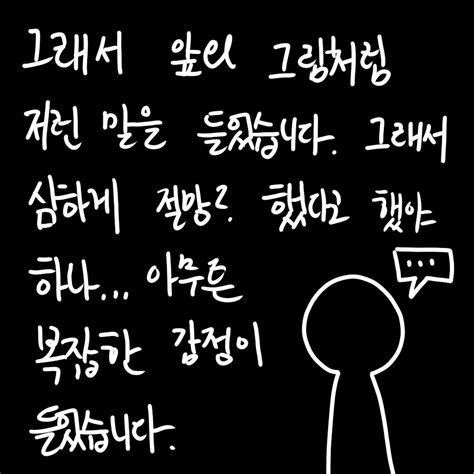 그래서 앞의 그림처럼
저런 말을 들었습니다. 그래서
심하게 절망? 했다고 했야
하나... 아무튼
복잡한 감정이
들었습니다.
...